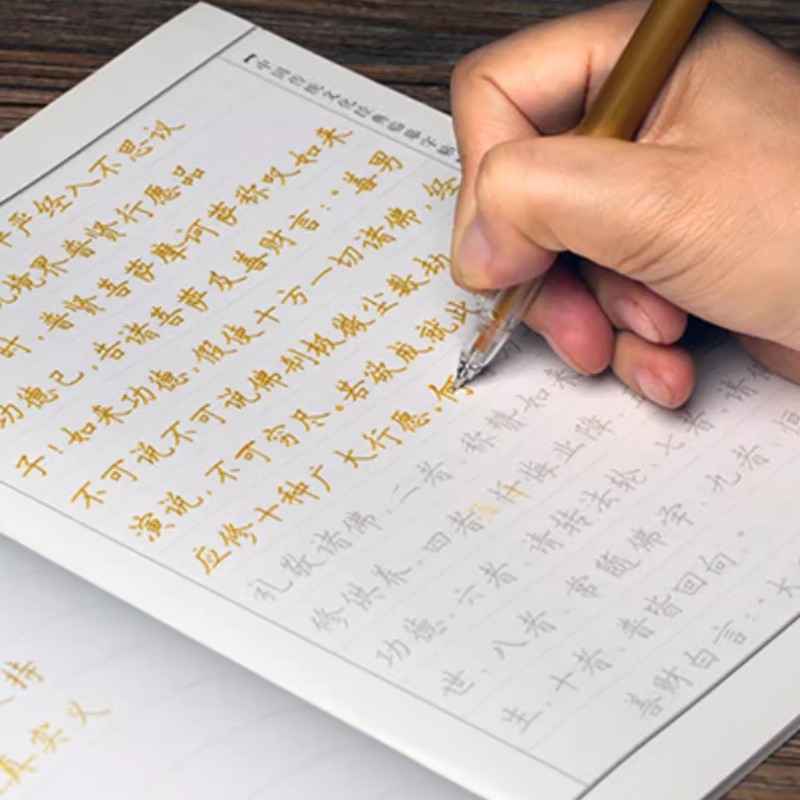 中国传统文化经典临摹字帖
严经入不思议
境界普贤行愿品
时,普贤菩萨摩诃萨称叹如来
功德已,告诸菩萨及善财言:“善男
子!如来功德,假使十方一切诸佛,经
不可说不可说佛刹极微尘数劫
演说,不可穷尽。若欲成就此
应修十种广大行愿。何
礼敬诸佛,二者,称赞如来
修供养,四者,忏悔业障,五
功德,六者,请转法轮,七者,请佛
世,八者,常随佛学,九者,恒
生,十者,普皆回向。
善财白言:“大
持
真实义